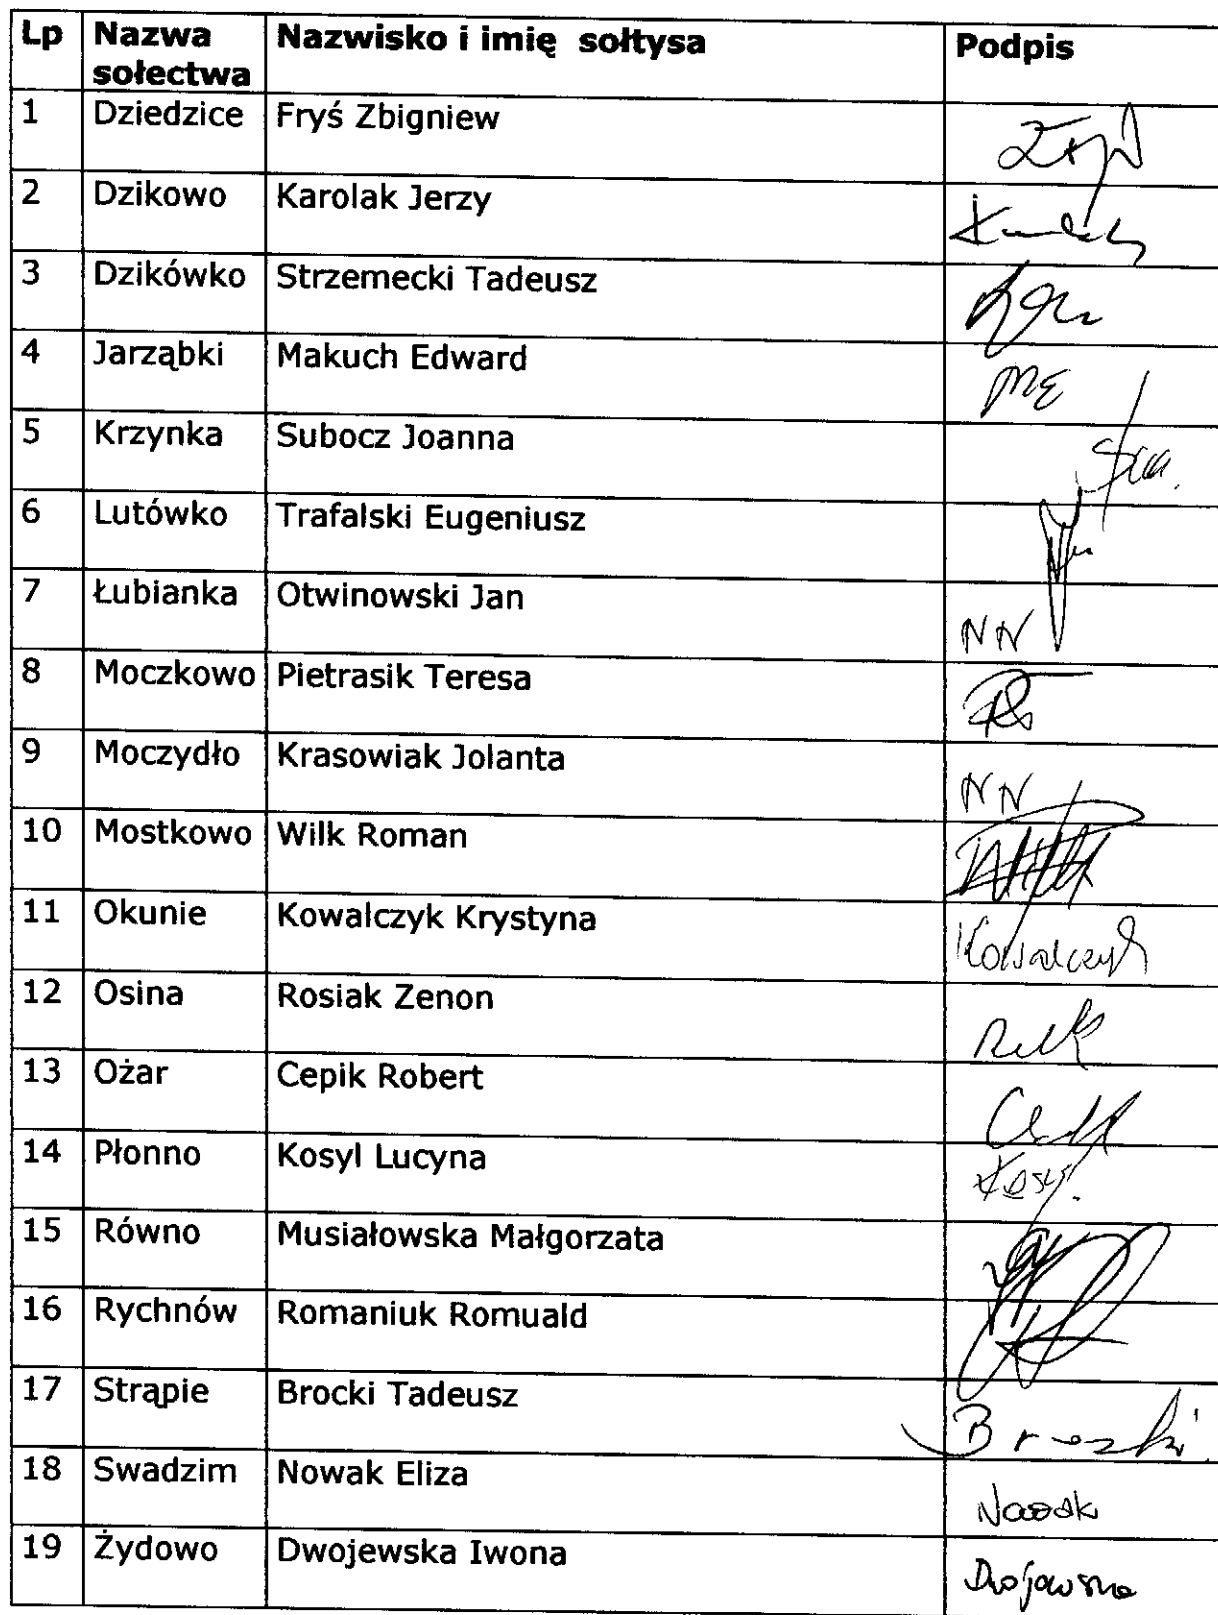 Lp Nazwa sołectwa Nazwisko i imię sołtysa Podpis
1 Dziedzice Fryś Zbigniew
2 Dzikowo Karolak Jerzy
3 Dzikówko Strzemecki Tadeusz
4 Jarząbki Makuch Edward ME
5 Krzynka Subocz Joanna
6 Lutówko Trafalski Eugeniusz
7 Łubianka Otwinowski Jan NN
8 Moczkowo Pietrasik Teresa
9 Moczydło Krasowiak Jolanta NN
10 Mostkowo Wilk Roman
11 Okunie Kowalczyk Krystyna Kowalczyk
12 Osina Rosiak Zenon
13 Ożar Cepik Robert
14 Płonno Kosyl Lucyna
15 Równo Musiałowska Małgorzata
16 Rychnów Romaniuk Romuald
17 Strąpie Brocki Tadeusz
18 Swadzim Nowak Eliza Nowak
19 Żydowo Dwojewska Iwona